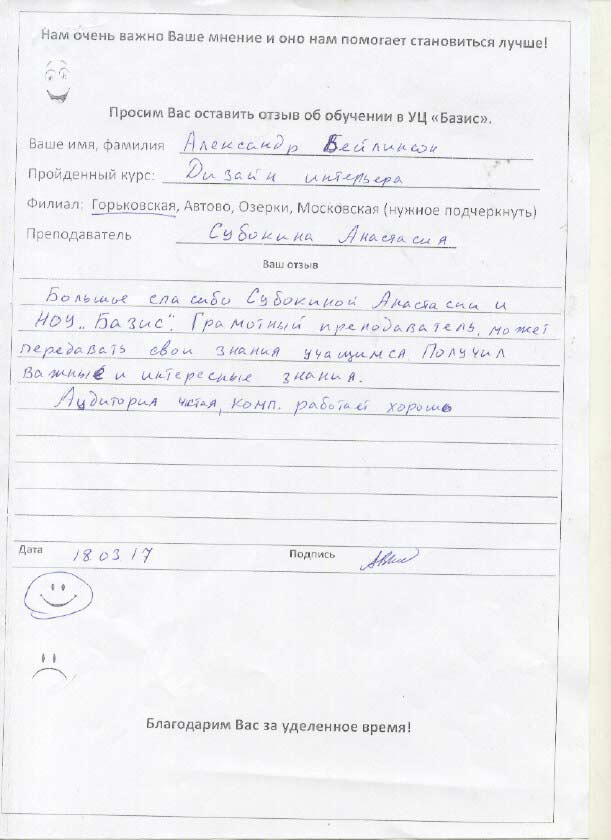 Нам очень важно Ваше мнение и оно нам помогает становиться лучше!
Просим Вас оставить отзыв об обучении в УЦ «Базис».
Ваше имя, фамилия Александр Бейлинсон
Пройденный курс: Дизайн интерьера
Филиал: Горьковская, Автово, Озерки, Московская (нужное подчеркнуть)
Преподаватель Субокина Анастасия
Ваш отзыв
Большое спасибо Субокиной Анастасии и
НОУ „Базис". Грамотный преподаватель, может
передавать свои знания учащимся. Получил
важные и интересные знания.
Аудитория чистая, комп. работает хорошо
Дата 18.03.17 Подпись
Благодарим Вас за уделенное время!